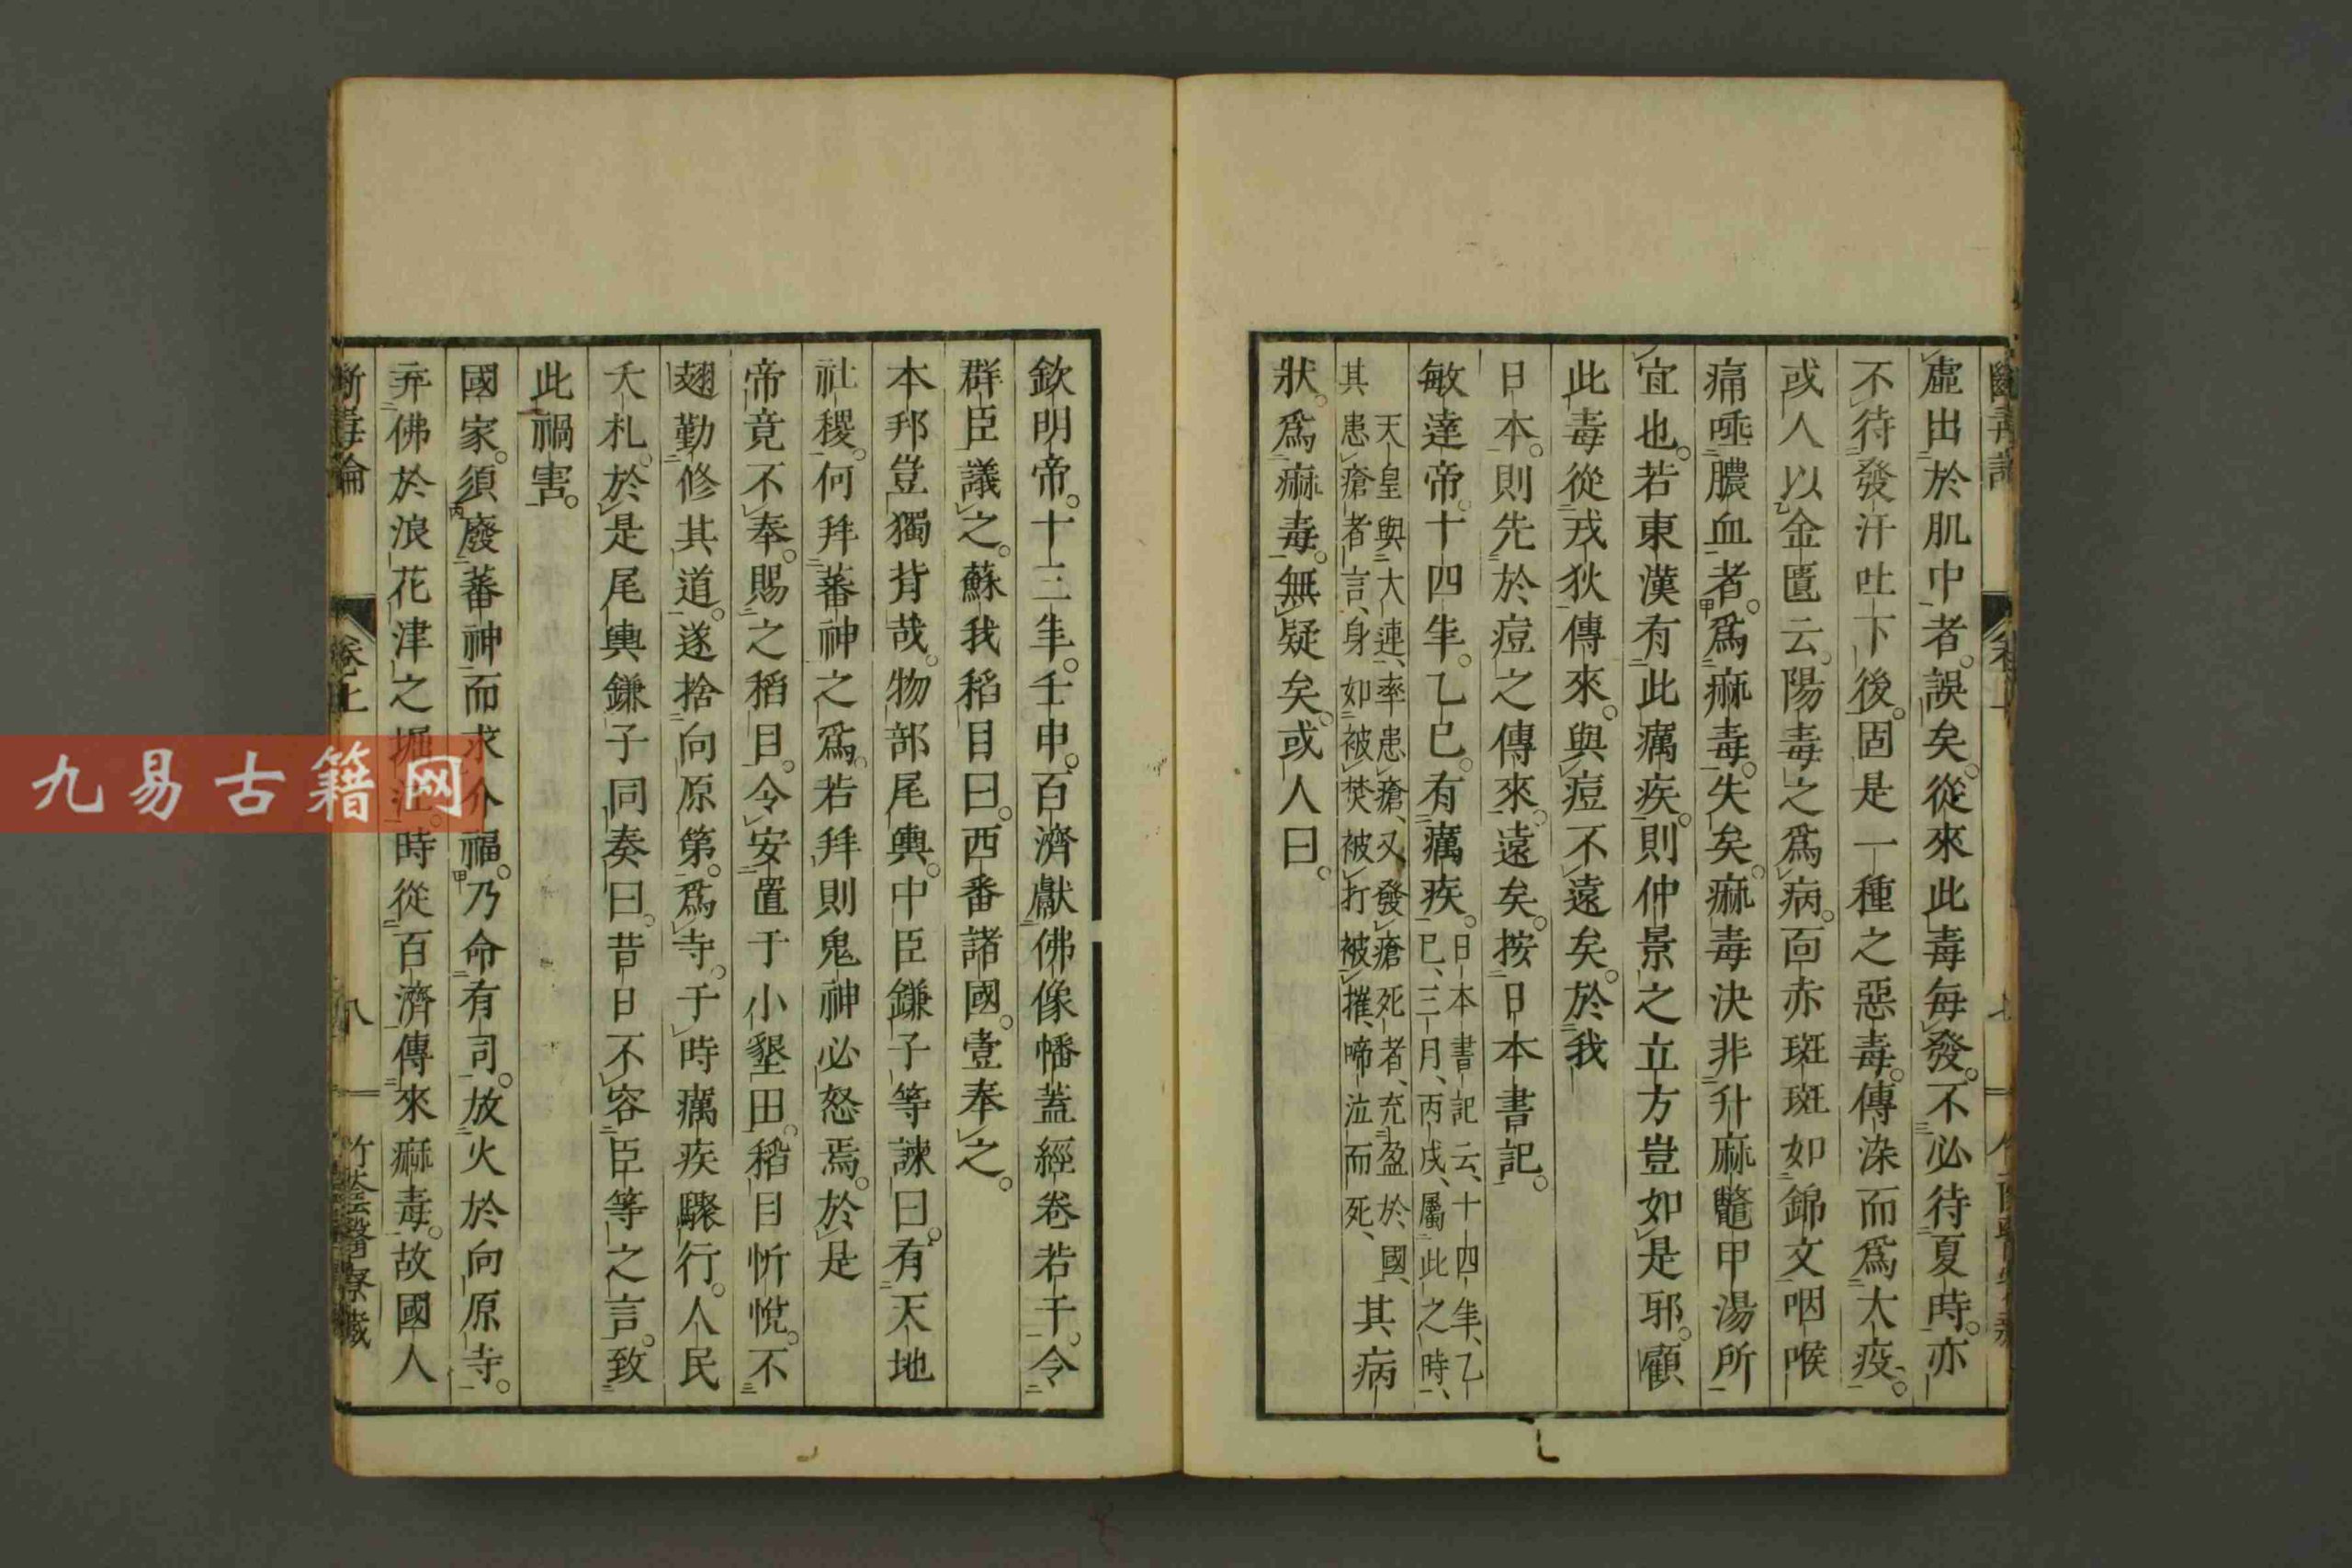 虛出於肌中者。誤矣。從來此毒每發。不必待夏時。亦
不待發汗吐下後。固是一種之惡毒。傳染而爲大疫。
或人以金匱云。陽毒之爲病。面赤斑斑如錦文咽喉
痛唾膿血者。爲痲毒。失矣。痲毒決非升麻鼈甲湯所
宜也。若東漢有此癘疾。則仲景之立方豈如是邪。顧
此毒從戎狄傳來。與痘不遠矣。於我
日本。則先於痘之傳來。遠矣。按日本書記。
敏達帝。十四年。乙巳。有癘疾。日本書記云、十四年、乙
巳、三月、丙戌、屬此之時、
天皇與大連、率患瘡、又發瘡死者、充盈於國、
其患瘡者言、身如被焚被打被摧、啼泣而死、其病
狀。爲痲毒。無疑矣。或人曰。
欽明帝。十三年。壬申。百濟獻佛像幡蓋經卷若干。令
群臣議之。蘇我稻目曰。西番諸國。壹奉之。
本邦豈獨背哉。物部尾輿。中臣鎌子等諫曰。有天地
社稷。何拜蕃神之爲。若拜則鬼神必怒焉。於是
帝竟不奉。賜之稻目。令安置于小墾田。稻目忻悅。不
翅勤修其道。遂捨向原第。爲寺。于時癘疾驟行。人民
夭札。於是尾輿鎌子同奏曰。昔日不容臣等之言。致
此禍害。
國家。須廢蕃神而求介福。乃命有司。放火於向原寺。
弃佛於浪花津之堀江。時從百濟傳來痲毒。故國人
斷毒論
卷上
八
竹蔭醫寮藏
九易古籍网